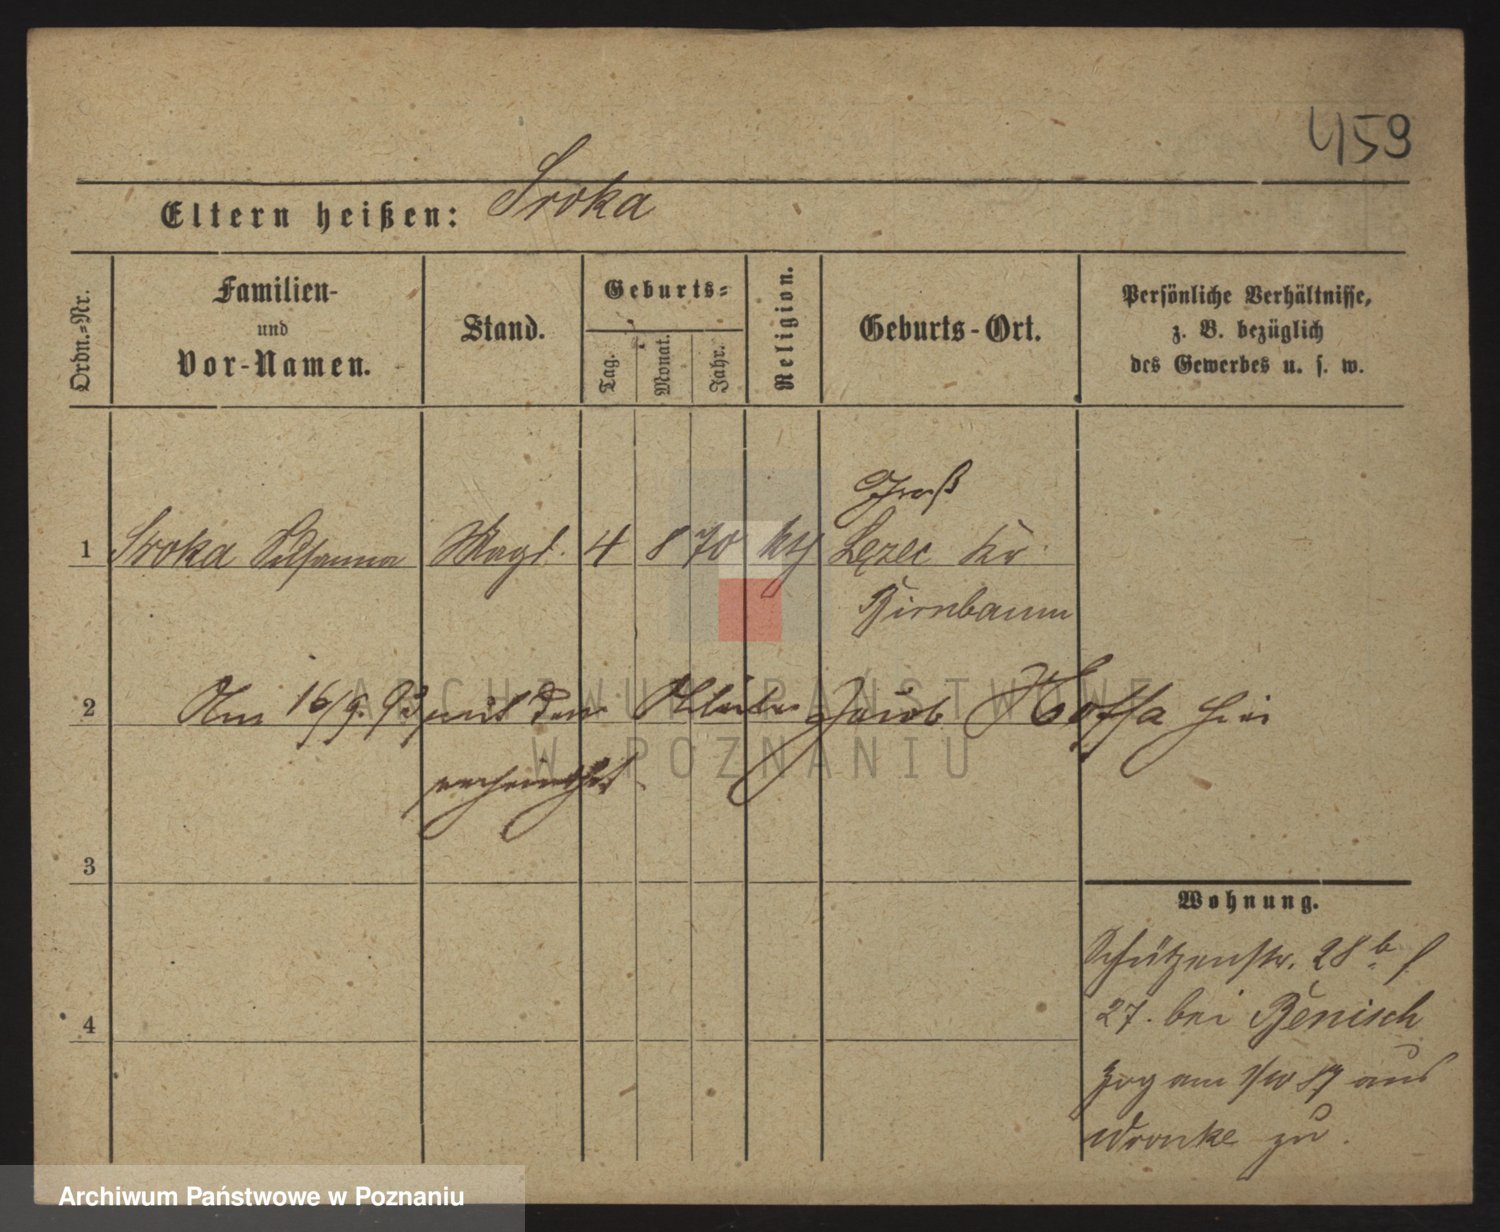 459
Eltern heißen: Sroka
Ordn.=Nr.
Familien-
und
Vor-Namen.
Stand.
Geburts=
Tag.
Monat.
Jahr.
Religion.
Geburts-Ort.
Persönliche Verhältnisse,
z. B. bezüglich
des Gewerbes u. s. w.
Groß
1 Sroka Magd. 4 8 70 Lezec Kr
Birnbaum
2 Am 16/9. 93 mit dem Jacob Hoffa hier
verheirathet
3
4
Wohnung.
Schützenstr. 28 b
27. bei Benisch
Zog am 1/10 87 aus
Wronke zu.
ARCHIWUM PAŃSTWOWE
W POZNANIU
Archiwum Państwowe w Poznaniu